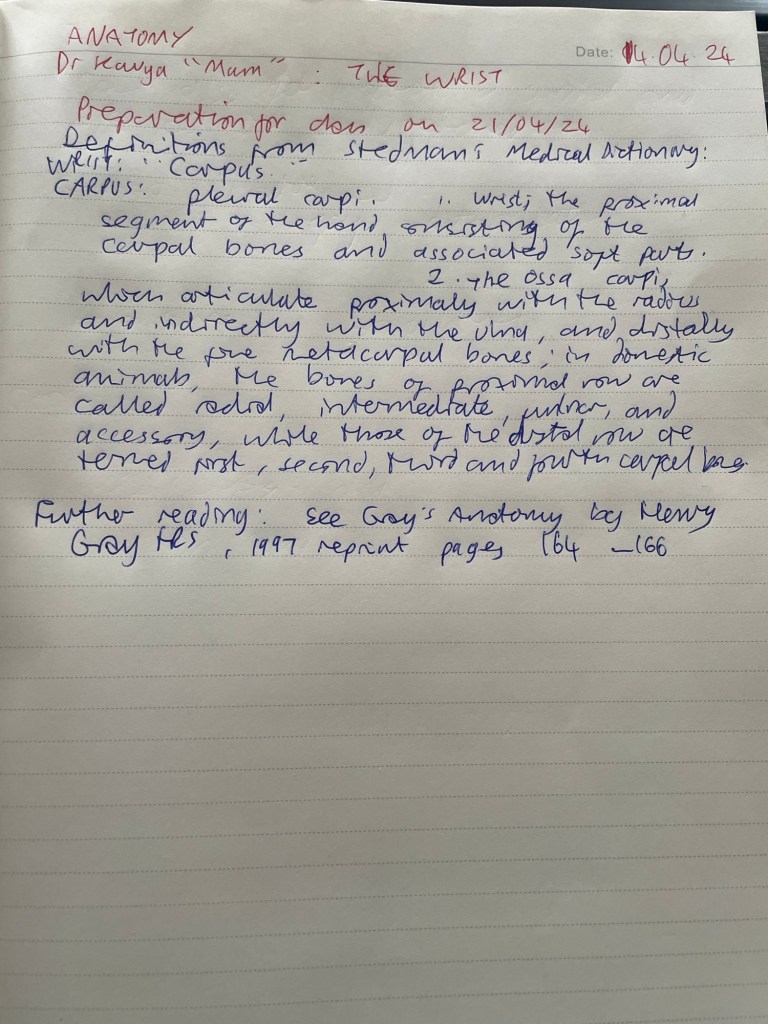 ANATOMY
Date: 14.04.24
Dr Kavya "Mam" : THE WRIST
Preparation for class on 21/04/24
Definitions from Stedman's Medical Dictionary:
WRIST: "Carpus."
CARPUS: plewral carpi. 1. wrist; the proximal
segment of the hand, consisting of the
carpal bones and associated soft parts.
2. The ossa carpi,
which articulate proximaly with the radius
and indirectly with the ulna, and distally
with the five metacarpal bones; in domestic
animals, the bones of proximal row are
called radial, intermediate, ulnar, and
accessory, while those of the distal row are
termed first, second, third and fourth carpal bones
Further reading: see Gray's Anatomy by Henry
Gray FRS, 1997 reprint pages 164 - 166